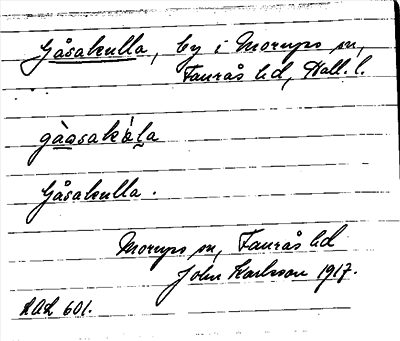 Gåsakulla, by i Morups sn,
Faurås hd, Hall. l.
gàasakàla
Gåsakulla.
Morups sn, Faurås hd
John Karlsson 1917.
AAL 601.